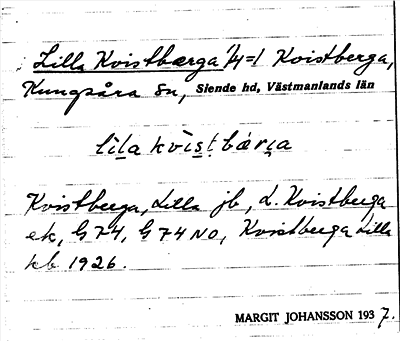 Lilla Kvistbærga 1/4=1 Kvistberga,
Kungsåra sn, Siende hd, Västmanlands län
lìla kvìstbárja
Kvistberga, Lilla jb, L. Kvistberga
ek, G 74, G 74 NO, Kvistberga Lilla
kb 1926.
MARGIT JOHANSSON 1937.